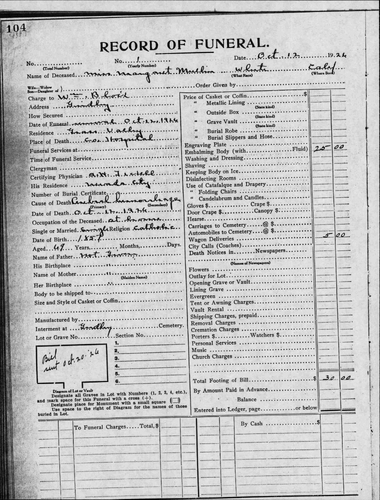 104
RECORD OF FUNERAL.
No. No. 1 Date Oct. 12 1926
(Total Number) (Yearly Number)
Name of Deceased Miss Margaret White Calif
(What Race) (Where Born)
Charge to
Order Given by
Address Gridley
How Secured
Date of Funeral
Residence Grass Valley
Place of Death Co. Hospital
Funeral Services at
Time of Funeral Service
Clergyman
Certifying Physician
His Residence
Number of Burial Certificate
Cause of Death Cerebral hemorrhage
Date of Death Oct.
Occupation of the Deceased at home
Single or Married Single Religion Catholic
Date of Birth 1857
Aged 69 Years Months Days
Name of Father Not Given
His Birthplace "
Name of Mother "
(Maiden Name)
Her Birthplace "
Body to be shipped to
Size and Style of Casket or Coffin
Manufactured by
Interment at Gridley Cemetery.
Lot or Grave No. Section No.
1.
2.
3.
4.
5.
6.
Oct. 20. '26
Diagram of Lot or Vault
Designate all Graves in Lot with Numbers (1, 2, 3, 4, etc.), and mark space for this Funeral with a cross (+).
Designate place for Monument with a small square
Use space to the right of Diagram for the names of those buried in Lot.
Price of Casket or Coffin
(State kind)
" Metallic Lining
" Outside Box
(State kind)
" Grave Vault
(State kind)
" Burial Robe
" Burial Slippers and Hose
Engraving Plate
Embalming Body (with Fluid) 25 00
Washing and Dressing
Shaving
Keeping Body on Ice
Disinfecting Rooms
Use of Catafalque and Drapery
" Folding Chairs
" Candelabrum and Candles
Gloves $ Crape $
Door Crape $ Canopy $
Hearse
Carriages to Cemetery @ $
Automobiles to Cemetery @ $
Wagon Deliveries 5 00
City Calls (Coaches)
Death Notices in Newspapers
Flowers
Outlay for Lot
Opening Grave or Vault
Lining Grave
Evergreen
Tent or Awning Charges
Vault Rental
Shipping Charges, prepaid
Removal Charges
Cremation Charges
Porters $ Watchers $
Personal Services
Music
Church Charges
Total Footing of Bill $ 30 00
By Amount Paid in Advance
Balance
Entered into Ledger, page or below.
To Funeral Charges $
By Cash $